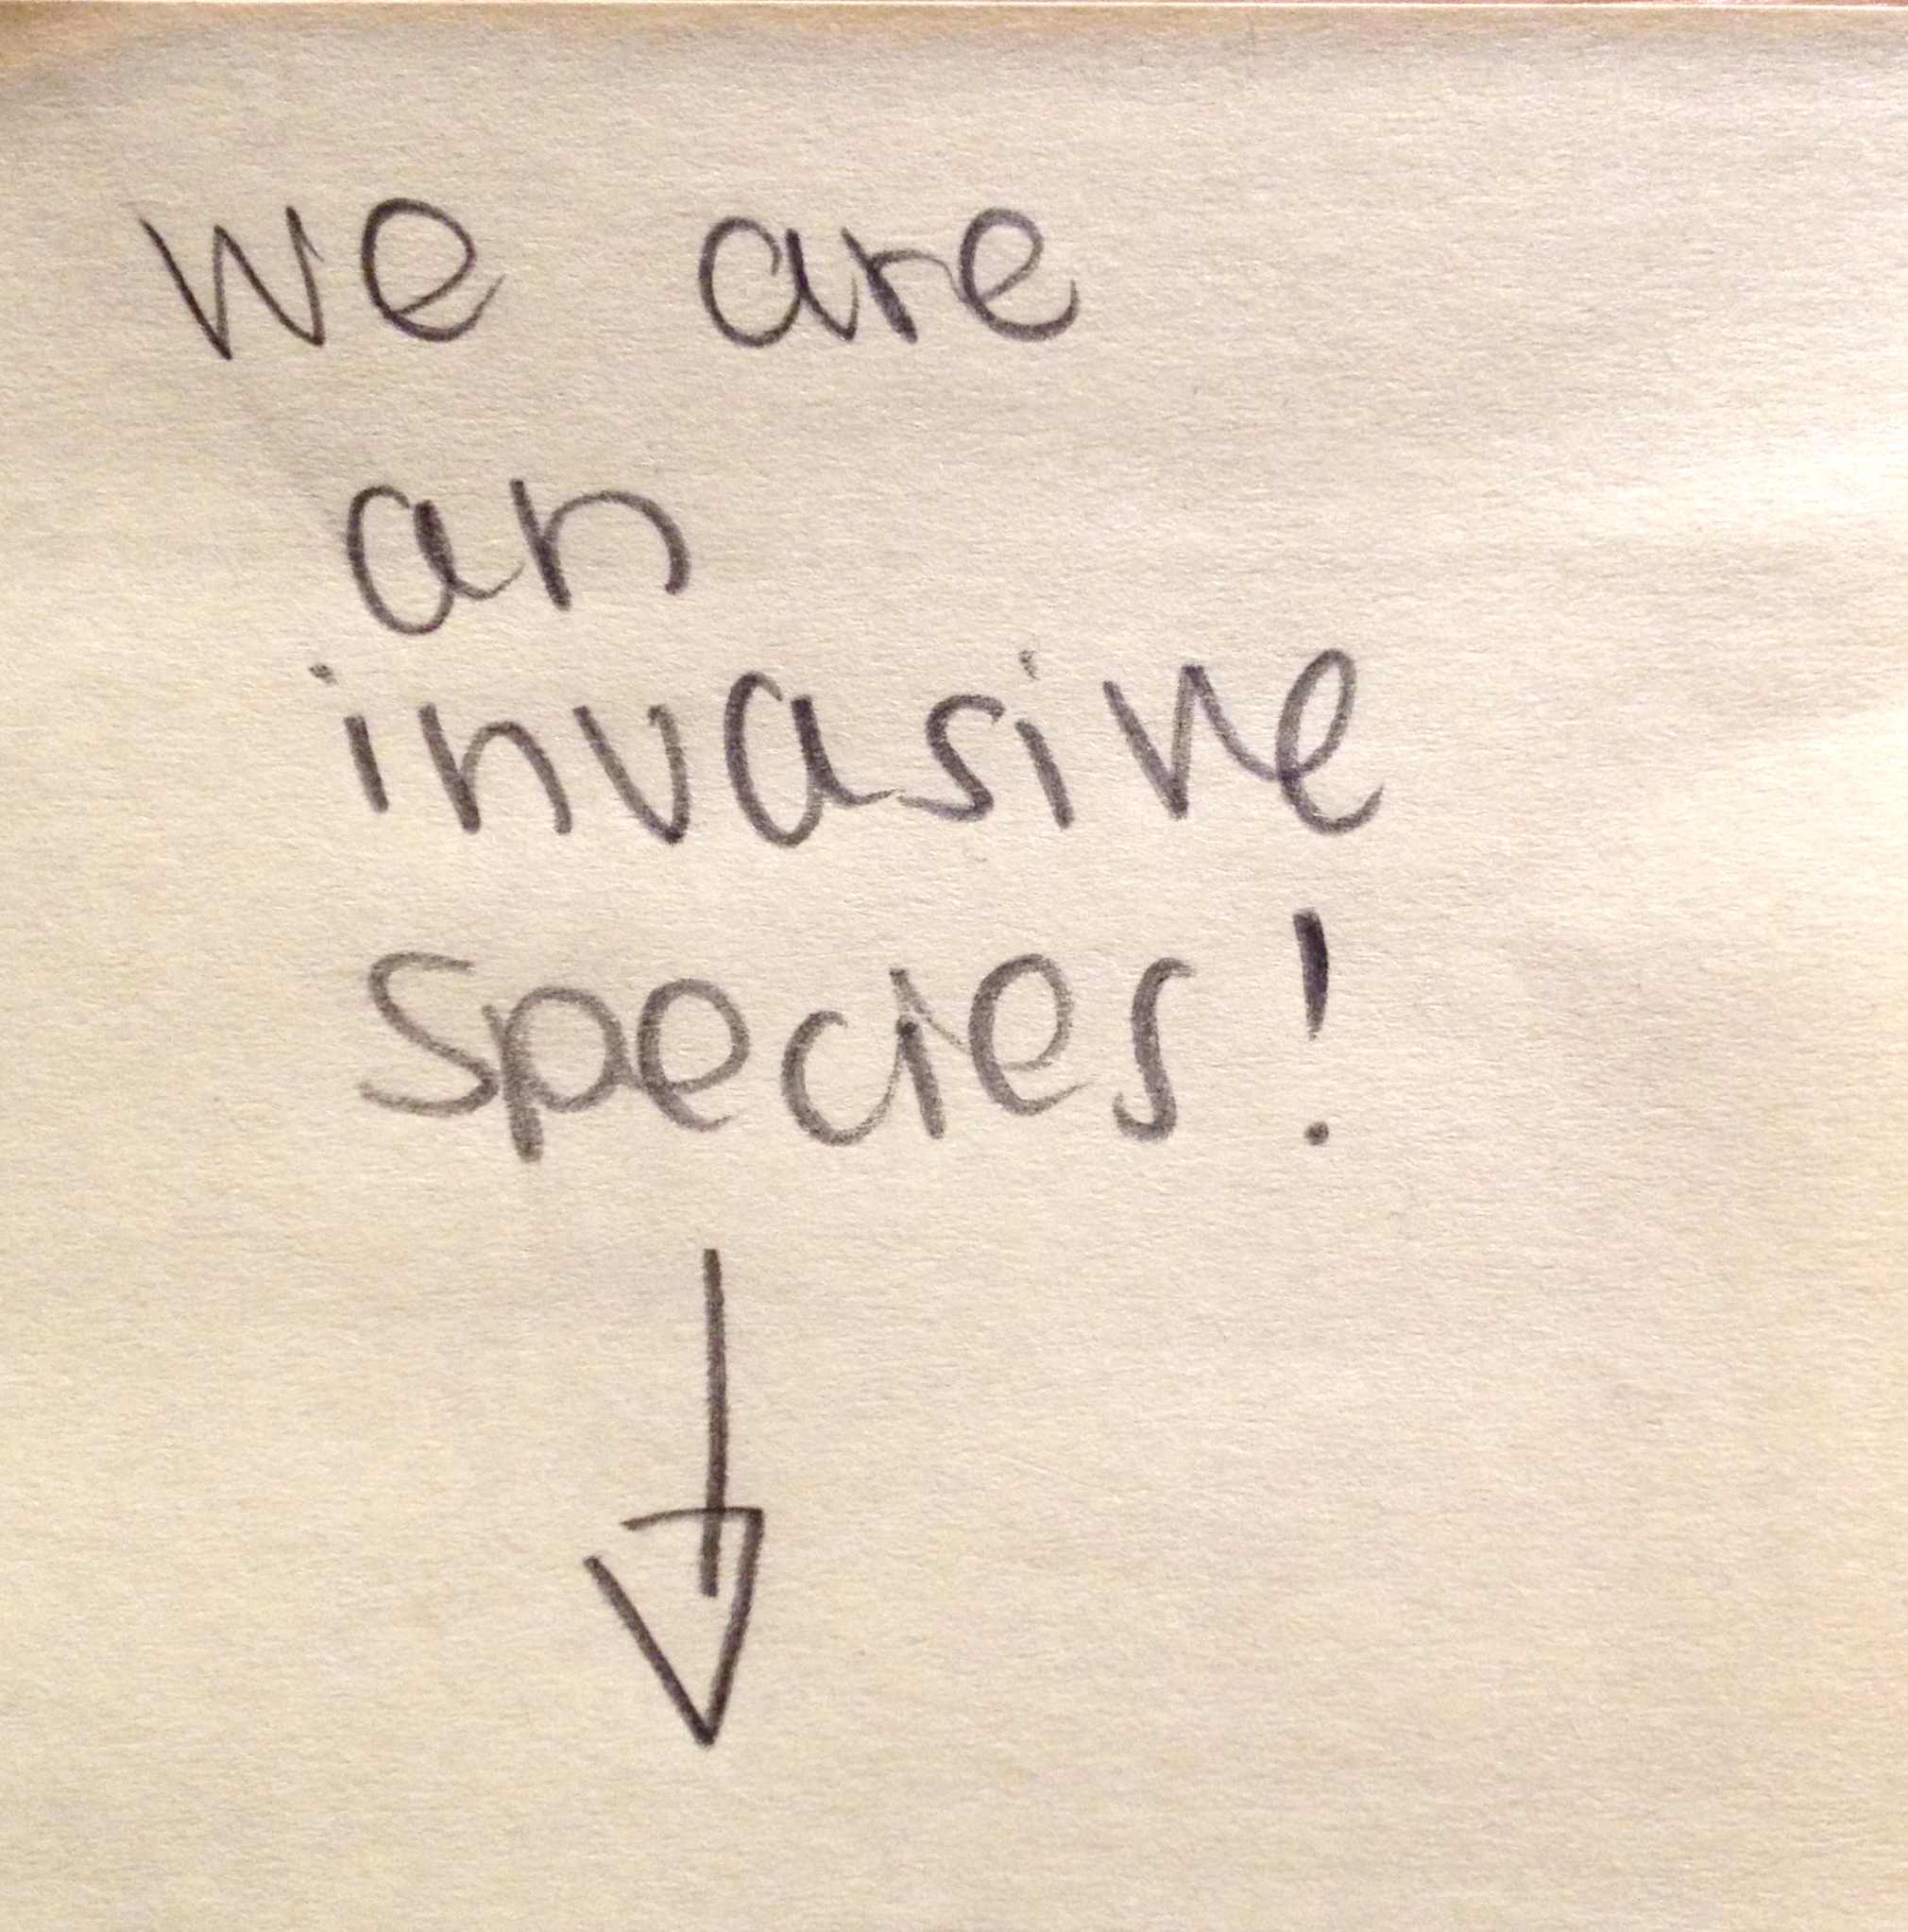 we are
an
invasive
species!